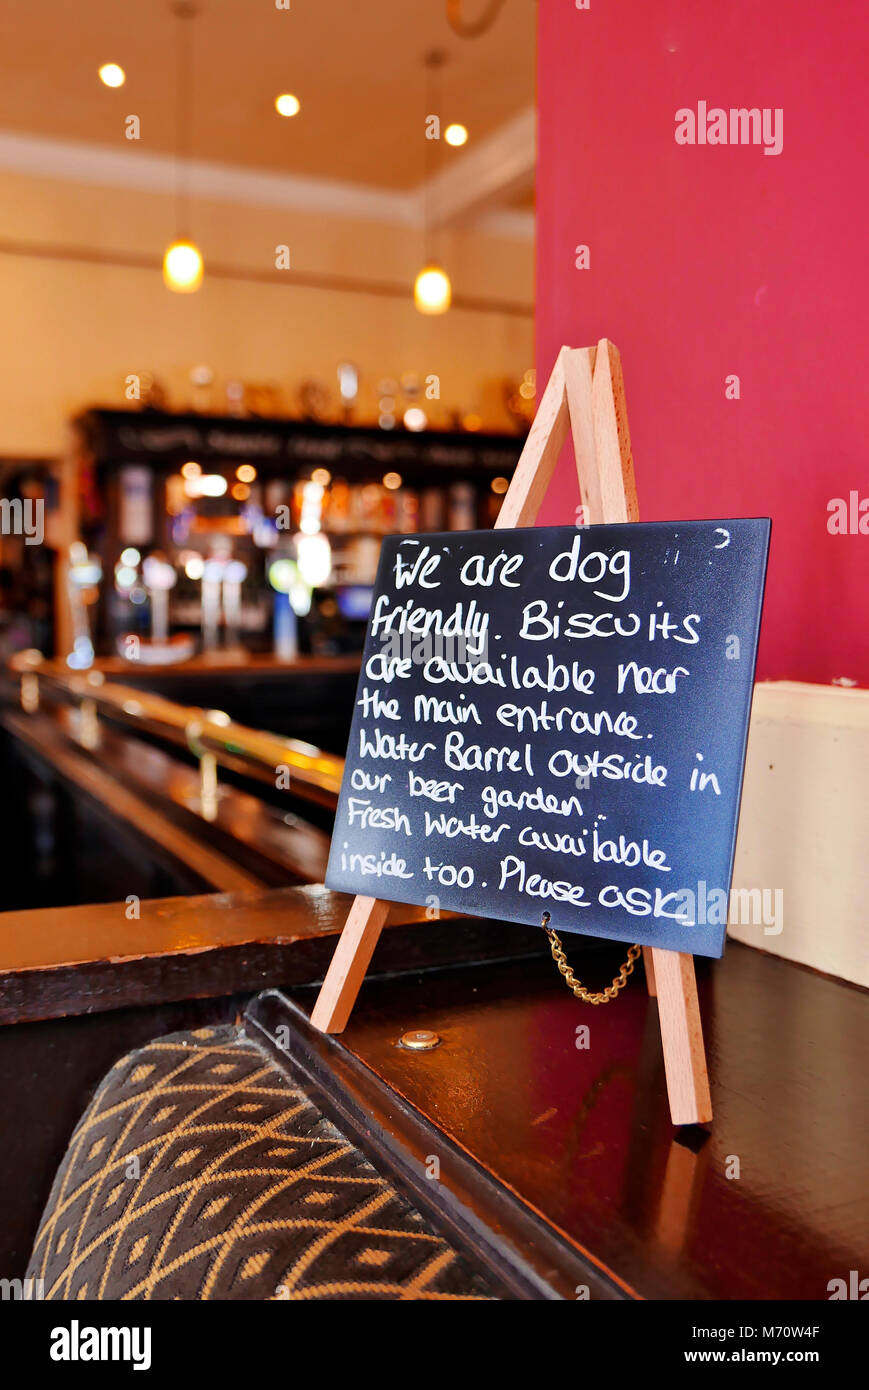 We are dog
friendly. Biscuits
are available near
the main entrance.
Water Barrel outside in
our beer garden..
Fresh water available
inside too. Please ask
alamy
alamy
Image ID: M70W4F
www.alamy.com